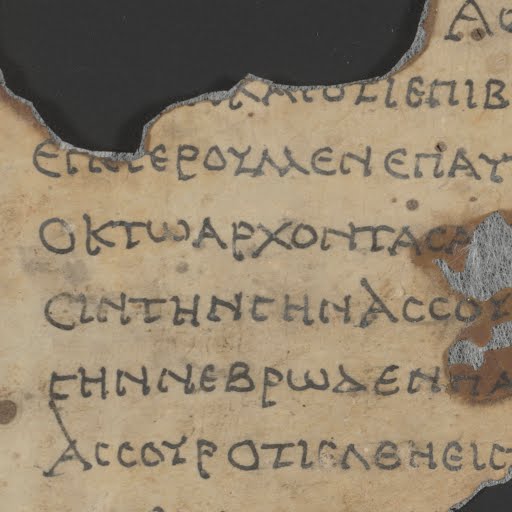 ΑΣ
ΚΑΙΟΤΙΕΠΙΒ
ΕΠΕΓΕΡΟΥΜΕΝΕΠΑΥ
ΟΚΤΩΑΡΧΟΝΤΑΣΑ
ΣΙΝΤΗΝΓΗΝΑΣΣΟΥ
ΓΗΝΝΕΒΡΩΔΕΝΠΑ
ΑΣΣΟΥΡΟΤΙΕΛΘΗΕΙΣ